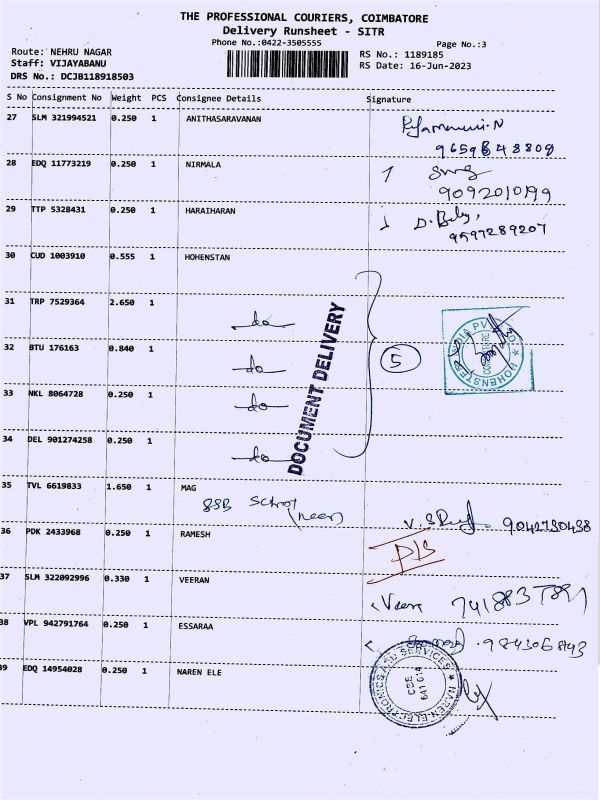 THE PROFESSIONAL COURIERS, COIMBATORE
Delivery Runsheet - SITR
Phone No.:0422-3505555 Page No.:3
Route: NEHRU NAGAR RS No.: 1189185
Staff: VIJAYABANU RS Date: 16-Jun-2023
DRS No.: DCJB118918503
S No Consignment No Weight PCS Consignee Details Signature
27 SLM 321994521 0.250 1 ANITHASARAVANAN
28 EDQ 11773219 0.250 1 NIRMALA
9092010199
29 TTP 5328431 0.250 1 HARAIHARAN
9597289207
30 CUD 1003910 0.555 1 HOHENSTAN
31 TRP 7529364 2.650 1 do
32 BTU 176163 0.840 1 do
33 NKL 8064728 0.250 1 do
34 DEL 901274258 0.250 1 do
DOCUMENT DELIVERY
5
35 TVL 6619833 1.650 1 MAG
SSB School
(near)
9042730438
36 PDK 2433968 0.250 1 RAMESH D/S
37 SLM 322092996 0.330 1 VEERAN
38 VPL 942791764 0.250 1 ESSARAA
39 EDQ 14954028 0.250 1 NAREN ELE
NAREN ELECTRONICS AND SERVICES
CBE
641 014